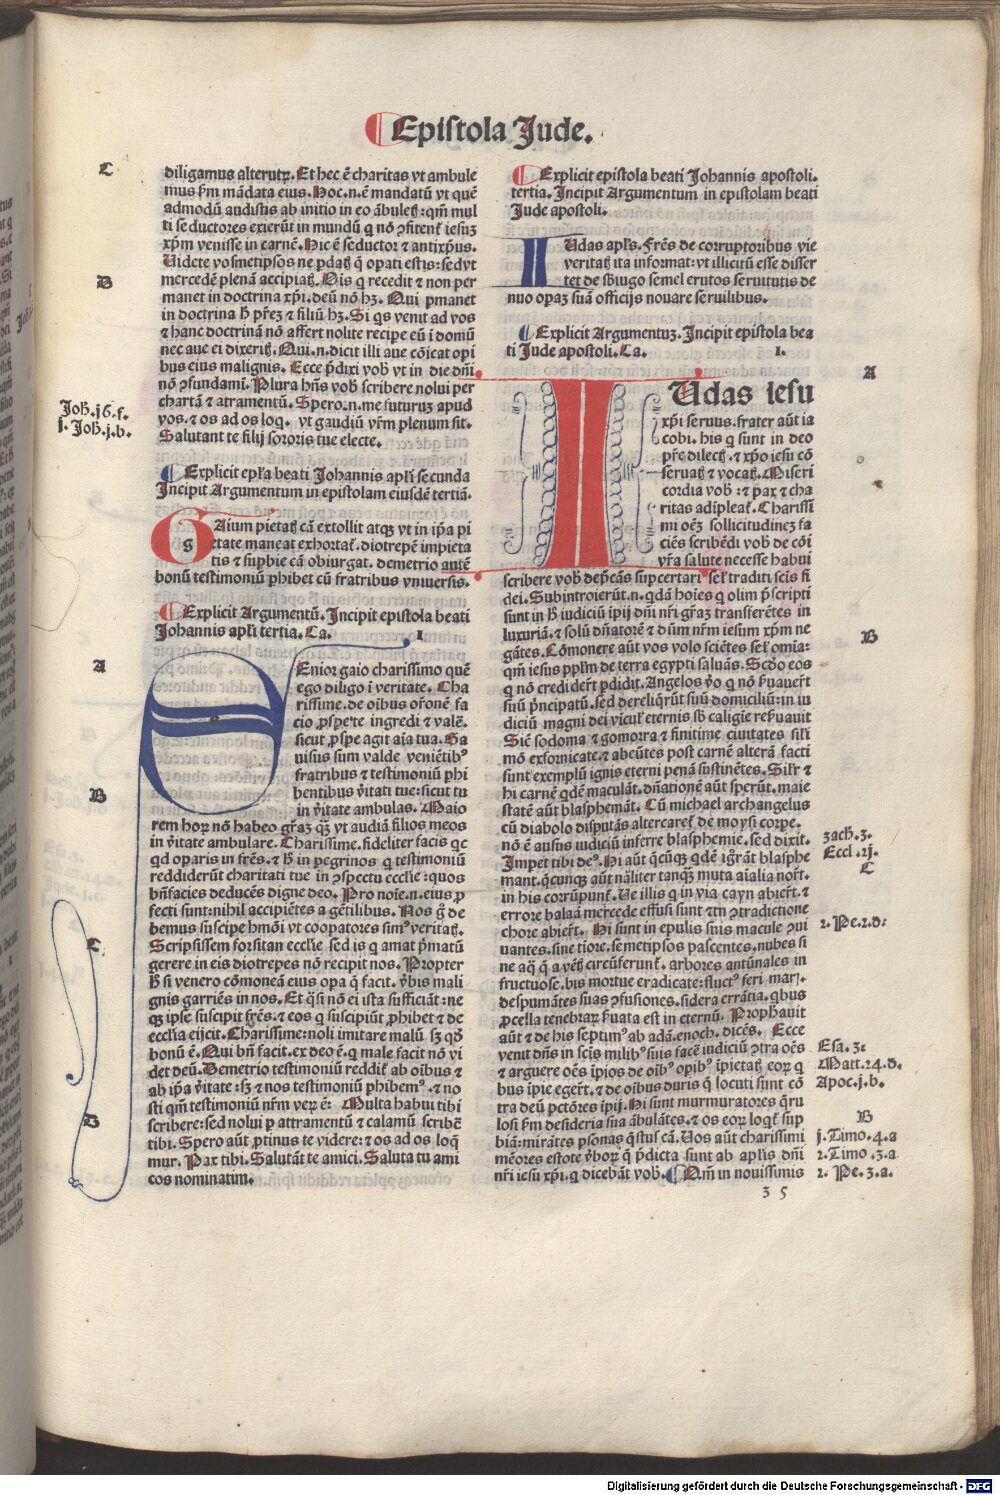 Epistola Jude.
C
diligamus alterutrꝫ. Et hec ē charitas vt ambule
mus ẜm mādata eius. Hoc .n. ē mandatū vt quē
admodū audistis ab initio in eo ābuletꝭ: qm̄ mul
ti seductores exierūt in mundū q nō ꝯfitent̉ iesuꝫ
xp̄m venisse in carnē. Hic ē seductor ⁊ antixp̄us.
Uidete vosmetipsos ne ꝑdatꝭ q̄ opati estis: sed vt
D
mercedē plenā accipiatꝭ. Ois q recedit ⁊ non per
manet in doctrina xp̄i. deū nō hꝫ. Qui ꝑmanet
in doctrina ħ pr̄eꝫ ⁊ filiū hꝫ. Si qs venit ad vos
⁊ hanc doctrinā nō affert nolite recipe eū ī domū
nec aue ei dixeritꝭ. Qui .n. dicit illi aue cōicat opi
bus eius malignis. Ecce p̄dixi vob̉ vt in die dn̄i
nō ꝯfundami. Plura hn̄s vob̉ scribere nolui per
Joh̄. j6. f.
chartā ⁊ atramentū. Spero .n. me futuruꝫ apud
j. Joh̄. j. b.
vos. ⁊ os ad os loq. vt gaudiū vr̄m plenum sit.
Salutant te filij sororis tue electe.
Explicit ep̄la beati Johannis apl̄i secunda
Incipit Argumentum in epistolam eiusdē tertiā.
g
Gaium pietatꝭ cā extollit atqꝫ vt in ip̄a pi
etate maneat exhortat̉. diotrepē impieta
tis ⁊ suꝑbie cā obiurgat. demetrio autē
bonū testimoniū ꝑhibet cū fratribus vniuersis.
Explicit Argumentū. Incipit epistola beati
Johannis apl̄i tertia. Ca. 1
A
Senior gaio charissimo quē
ego diligo ī veritate. Cha
rissime. de oibus or̄onē fa
cio ꝓspe̾te ingredi ⁊ valē.
sicut ꝓspe agit aīa tua. Ga
uisus sum valde veniētibꝰ
fratribus ⁊ testimoniū phi
B
bentibus v̾itati tue: sicut tu
in v̾itate ambulas. Maio
rem horꝫ nō habeo gr̄aꝫ qꝫ vt audiā filios meos
in v̾itate ambulare. Charissime. fideliter facis qc
qd oparis in fr̄es. ⁊ ħ in pegrinos q testimoniū
reddiderūt charitati tue in ꝯspectu ecclīe: quos
bn̄facies deducēs digne deo. Pro noīe .n. eius ꝓ
fecti sunt: nihil accipiētes a gētilibus. Nos g̊ de
bemus suscipe hmōi vt coopatores simꝰ veritatꝭ.
C
Scripsissem forsitan ecclīe sed is q amat p̄matū
gerere in eis diotrepes nō recipit nos. Propter
ħ si venero cōmoneā eius opa q̄ facit. v̾bis mali
gnis garriēs in nos. Et q̄si nō ei ista sufficiāt: ne
qꝫ ipse suscipit fr̄es. ⁊ eos q suscipiūt ꝓhibet ⁊ de
ecclīa eijcit. Charissime: noli imitare malū sꝫ qd̊
bonū ē. Qui bn̄ facit. ex deo ē. q male facit nō vi
det deū. Demetrio testimoniū reddit̉ ab oibus ⁊
ab ip̄a v̾itate: sꝫ ⁊ nos testimoniū phibemꝰ. ⁊ no
D
sti qm̄ testimoniū nr̄m ver̄ ē: Multa habui tibi
scribere: sed nolui p atramentū ⁊ calamū scribē
tibi. Spero aūt ꝓtinus te videre: ⁊ os ad os loq̄
mur. Pax tibi. Salutāt te amici. Saluta tu ami
cos nominatim.
Explicit epistola beati Johannis apostoli.
tertia. Incipit Argumentum in epistolam beati
Jude apostoli.
IUdas apl̄s. Fr̄es de corruptoribus vie
veritatꝭ ita informat: vt illicitū esse disser
tet de sb̉iugo semel erutos seruitutis de
nuo opaꝫ suā officijs nouare seruilibus.
Explicit Argumentuꝫ. Incipit epistola bea
ti Jude apostoli. Ca. 1.
A
IUdas iesu
xp̄i seruus. frater aūt ia
cobi. his q sunt in deo
pr̄e dilectꝭ. ⁊ xp̄o iesu cō
seruatꝭ ⁊ vocatꝭ. Miseri
cordia vob̉: ⁊ pax ⁊ cha
ritas adipleat̉. Charissi
mi oēꝫ sollicitudineꝫ fa
ciēs scribēdi vob̉ de cōi
vr̄a salute necesse habui
scribere vob̉ dep̄cās supcertari sel̉ traditi sc̄is fi
dei. Subintroierūt .n. qdā hoīes q olim p̄scripti
sunt in ħ iudiciū ipij dn̄i nr̄i gr̄aꝫ transferētes in
luxuriā. ⁊ solū dn̄atorē ⁊ dn̄m nr̄m iesum xp̄m ne
B
gātes. Cōmonere aūt vos volo sciētes sel̉ omīa:
qm̄ iesus pplm̄ de terra egypti saluās. Scd̊o eos
q nō crediderūt pdidit. Angelos v̊o q nō ẜuauer̄t
suū p̄ncipatū. sed dereliq̄rūt suū domiciliū: in iu
diciū magni dei vicul̉ eternis sb̉ caligīe reẜuauit
Sic̄ sodoma ⁊ gomorra ⁊ finitime ciuitates sil̉i
mō exfornicate. ⁊ abeūtes post carnē alterā facti
sunt exemplū ignis eterni penā sustinētes. Sil̉r ⁊
hi carnē qdē maculāt. dn̄ationē aūt spernūt. maie
statē aūt blasphemāt. Cū michael archangelus
cū diabolo disputās altercaret̉ de moysi corpe.
zach̄. 3.
nō ē ausus iudiciū inferre blasphemie. sed dixit.
Eccl̄. 2j.
Impet tibi deꝰ. Hi aūt q̄cūqꝫ qdē ignorāt blasphe
C
mant. q̄cunqꝫ aūt nāliter tanqꝫ muta aīalia nor̄t.
in his corrūpunt̉. Ue illis q in via cayn abier̄t. ⁊
errore balaā mercede effusi sunt ⁊ in ꝯtradictione
2. Pe. 2. d:
chore abier̄t. Hi sunt in epulis suis macule ꝯui
uantes. sine tīore. semetipsos pascentes. nubes si
ne aq̄ q̄ a vētꝭ circūferunt̉. arbores autūnales in
fructuose. bis mortue eradicate: fluctꝰ feri marꝭ.
despumātes suas ꝯfusiones. sidera errātia. qbus
ꝓcella tenebrarꝫ ẜuata est in eternū. Prophauit
aūt ⁊ de his septimꝰ ab adā. enoch. dicēs. Ecce
Esa. 3:
venit dn̄s in sc̄is milibꝰ suis facē iudiciū ꝯtra oēs
Matt. 24. d.
⁊ arguere oēs īpios de oībꝰ opibꝰ īpietatꝭ eorꝫ q
Apoc. j. b.
bus īpie eger̄t. ⁊ de oibus duris q̄ locuti sunt cō
tra deū pctōres īpij. Hi sunt murmuratores q̄ru
D
losi ẜm desideria sua ābulātes. ⁊ os eorꝫ loqt̉ sup
j. Timo. 4. a
biā: mirātes psonas q̄stus cā. Uos aūt charissimi
2. Timo. 3. a
mēores estote v̾borꝫ q̄ p̄dicta sunt ab apl̄is dn̄i
2. Pe. 3. a.
nr̄i iesu xp̄i. q dicebāt vob̉. Qm̄ in nouissimis
3 5
Digitalisierung gefördert durch die Deutsche Forschungsgemeinschaft - DFG